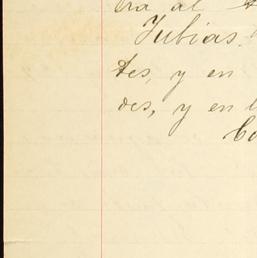 era al
Jubias.
tes, y en
des, y en l
Co